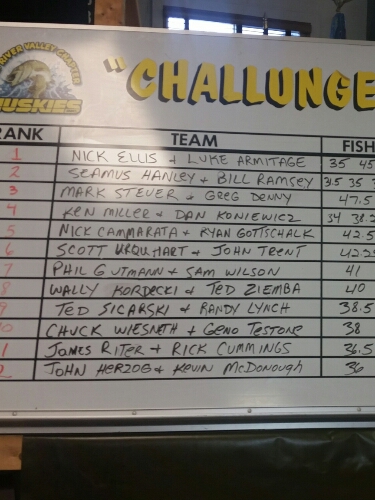 RIVER VALLEY CHAPTER
HUSKIES
"CHALLUNGE
RANK TEAM FISH
1 NICK ELLIS + LUKE ARMITAGE 35 45
2 SEAMUS HANLEY + BILL RAMSEY 31.5 35
3 MARK STEVER + GREG DENNY 47.5
4 KEN MILLER + DAN KONIEWICZ 34 38.2
5 NICK CAMMARATA + RYAN GOTTSCHALK 42.5
6 SCOTT URQUHART + JOHN TRENT 42.25
7 PHIL GUTMANN + SAM WILSON 41
8 WALLY KORDECKI + TED ZIEMBA 40
9 TED SICARSKI + RANDY LYNCH 38.5
0 CHUCK WIESNETH + GENO TESTONE 38
1 JAMES RITER + RICK CUMMINGS 36.5
2 JOHN HERZOG + KEVIN McDONOUGH 36